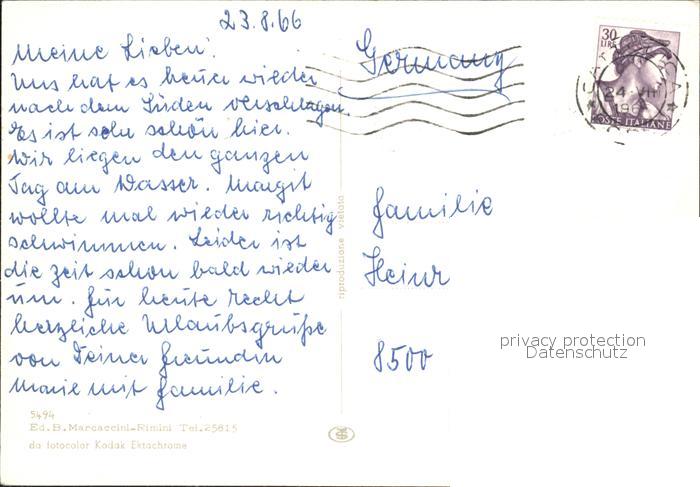 23.8.66
Meine Lieben!
Uns hat es heuer wieder
nach dem Süden verschlagen.
Es ist sehr schön hier.
Wir liegen den ganzen
Tag am Wasser. Margit
wollte mal wieder richtig
schwimmen. Leider ist
die Zeit schon bald wieder
um. Für heute recht
herzliche Urlaubsgrüße
von Deiner Freundin
Marie mit Familie.
5494
Ed. B. Marcaccini-Rimini Tel. 25815
da fotocolor Kodak Ektachrome
riproduzione vietata
Germany
30
LIRE
24 VIII
196
POSTE ITALIANE
Familie
8500
privacy protection
Datenschutz